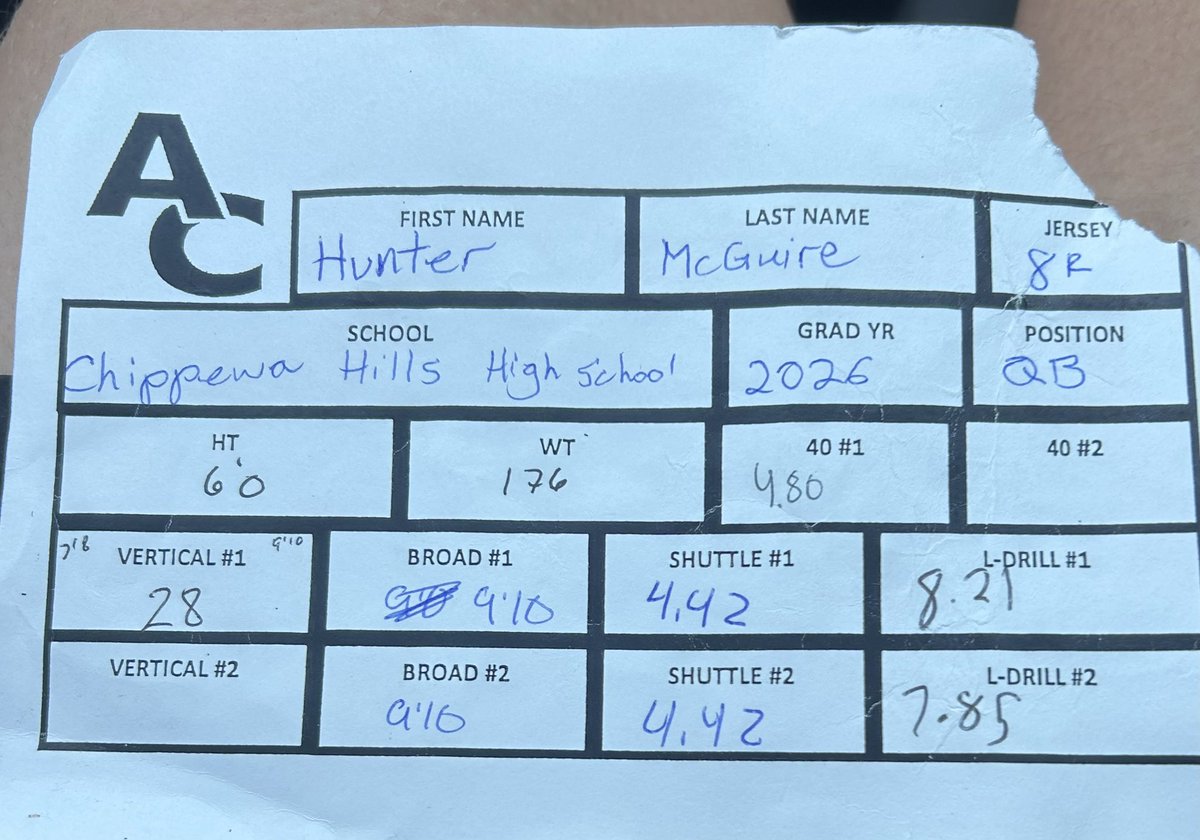 AC
FIRST NAME LAST NAME JERSEY
Hunter McGuire 8R
SCHOOL GRAD YR POSITION
Chippewa Hills High School 2026 QB
HT WT 40 #1 40 #2
6'0 176 4.80
7'8 VERTICAL #1 9'10 BROAD #1 SHUTTLE #1 L-DRILL #1
28 9'10 4.42 8.21
VERTICAL #2 BROAD #2 SHUTTLE #2 L-DRILL #2
9'10 4.42 7.85